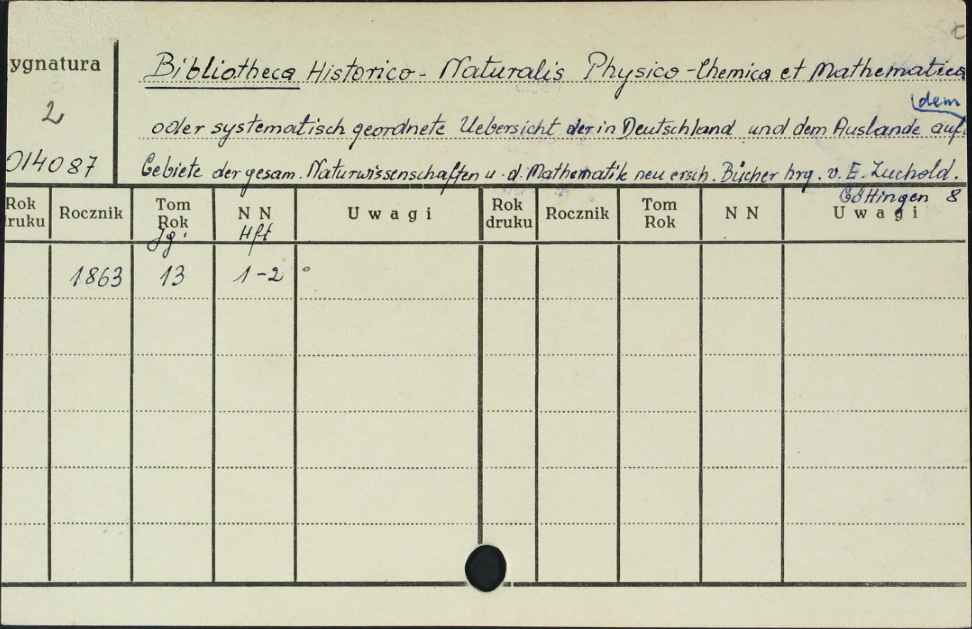 ygnatura
2
014087
Bibliotheca Historico-Naturalis Physico-Chemica et Mathematica
dem
oder systematisch geordnete Uebersicht der in Deutschland und dem Auslande auf
Gebiete der gesam. Naturwissenschaften u. d. Mathematik neu ersch. Bücher hrg. v. E. Zuchold.
Göttingen 8
Rok druku Rocznik Tom Rok N N Uwagi Rok druku Rocznik Tom Rok N N Uwagi
Jg. Hft
1863 13 1-2